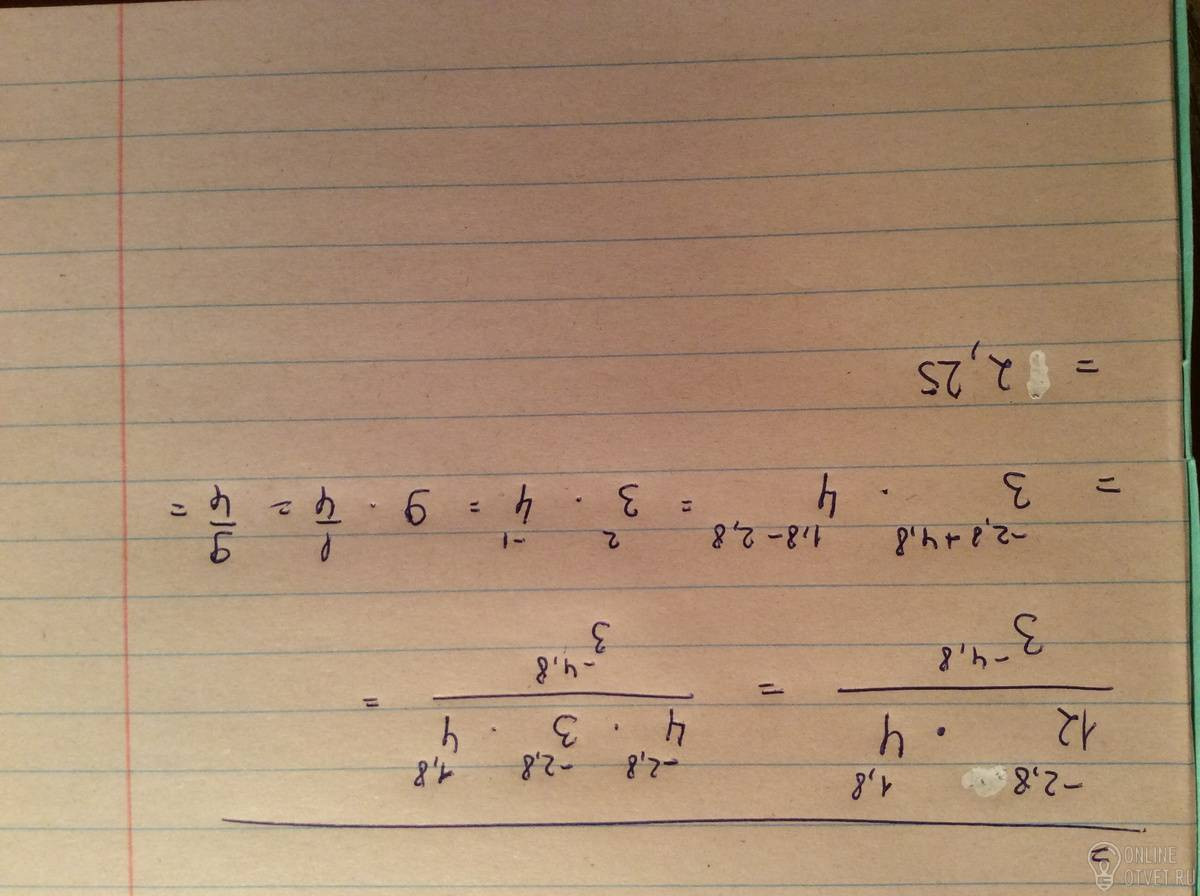 =
12^{-2,8} · 4^{1,8} / 3^{-4,8} = 4^{-2,8} · 3^{-2,8} · 4^{1,8} / 3^{-4,8} =
= 3^{-2,8+4,8} · 4^{1,8-2,8} = 3^2 · 4^{-1} = 9 · 1/4 = 9/4 =
= 2,25
ONLINE
OTVET.RU